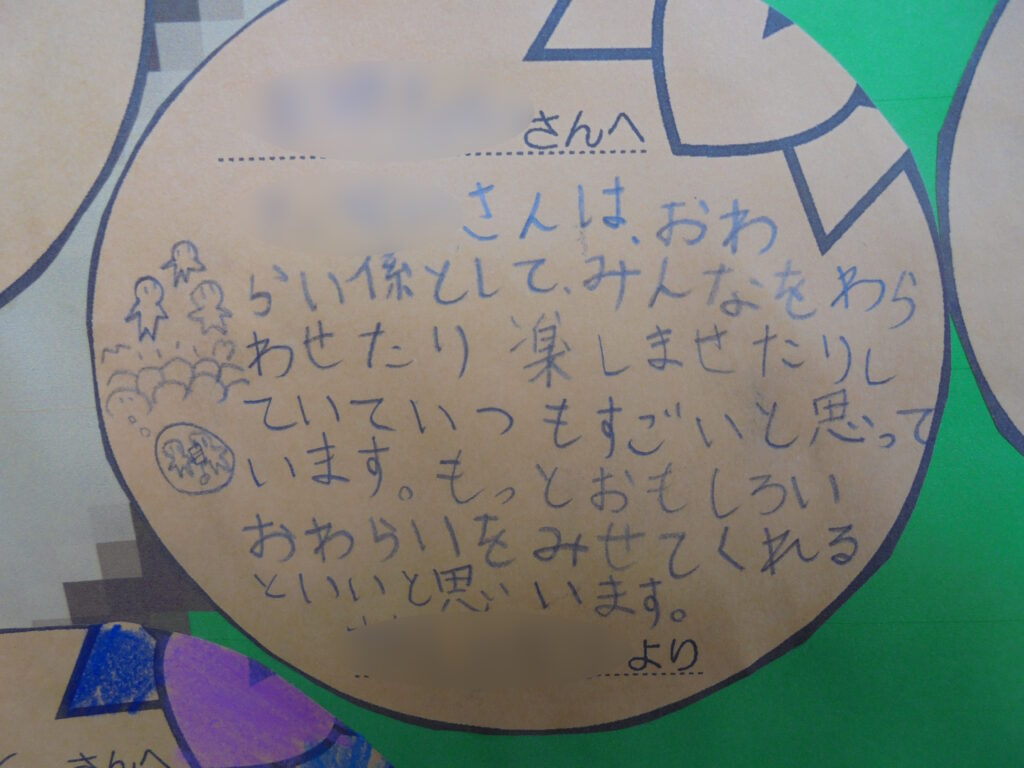 さんへ
さんは、おわ
らい係として、みんなをわら
わせたり楽しませたりし
ていていつもすごいと思って
います。もっとおもしろい
おわらいをみせてくれる
といいと思います。
より
さんへ